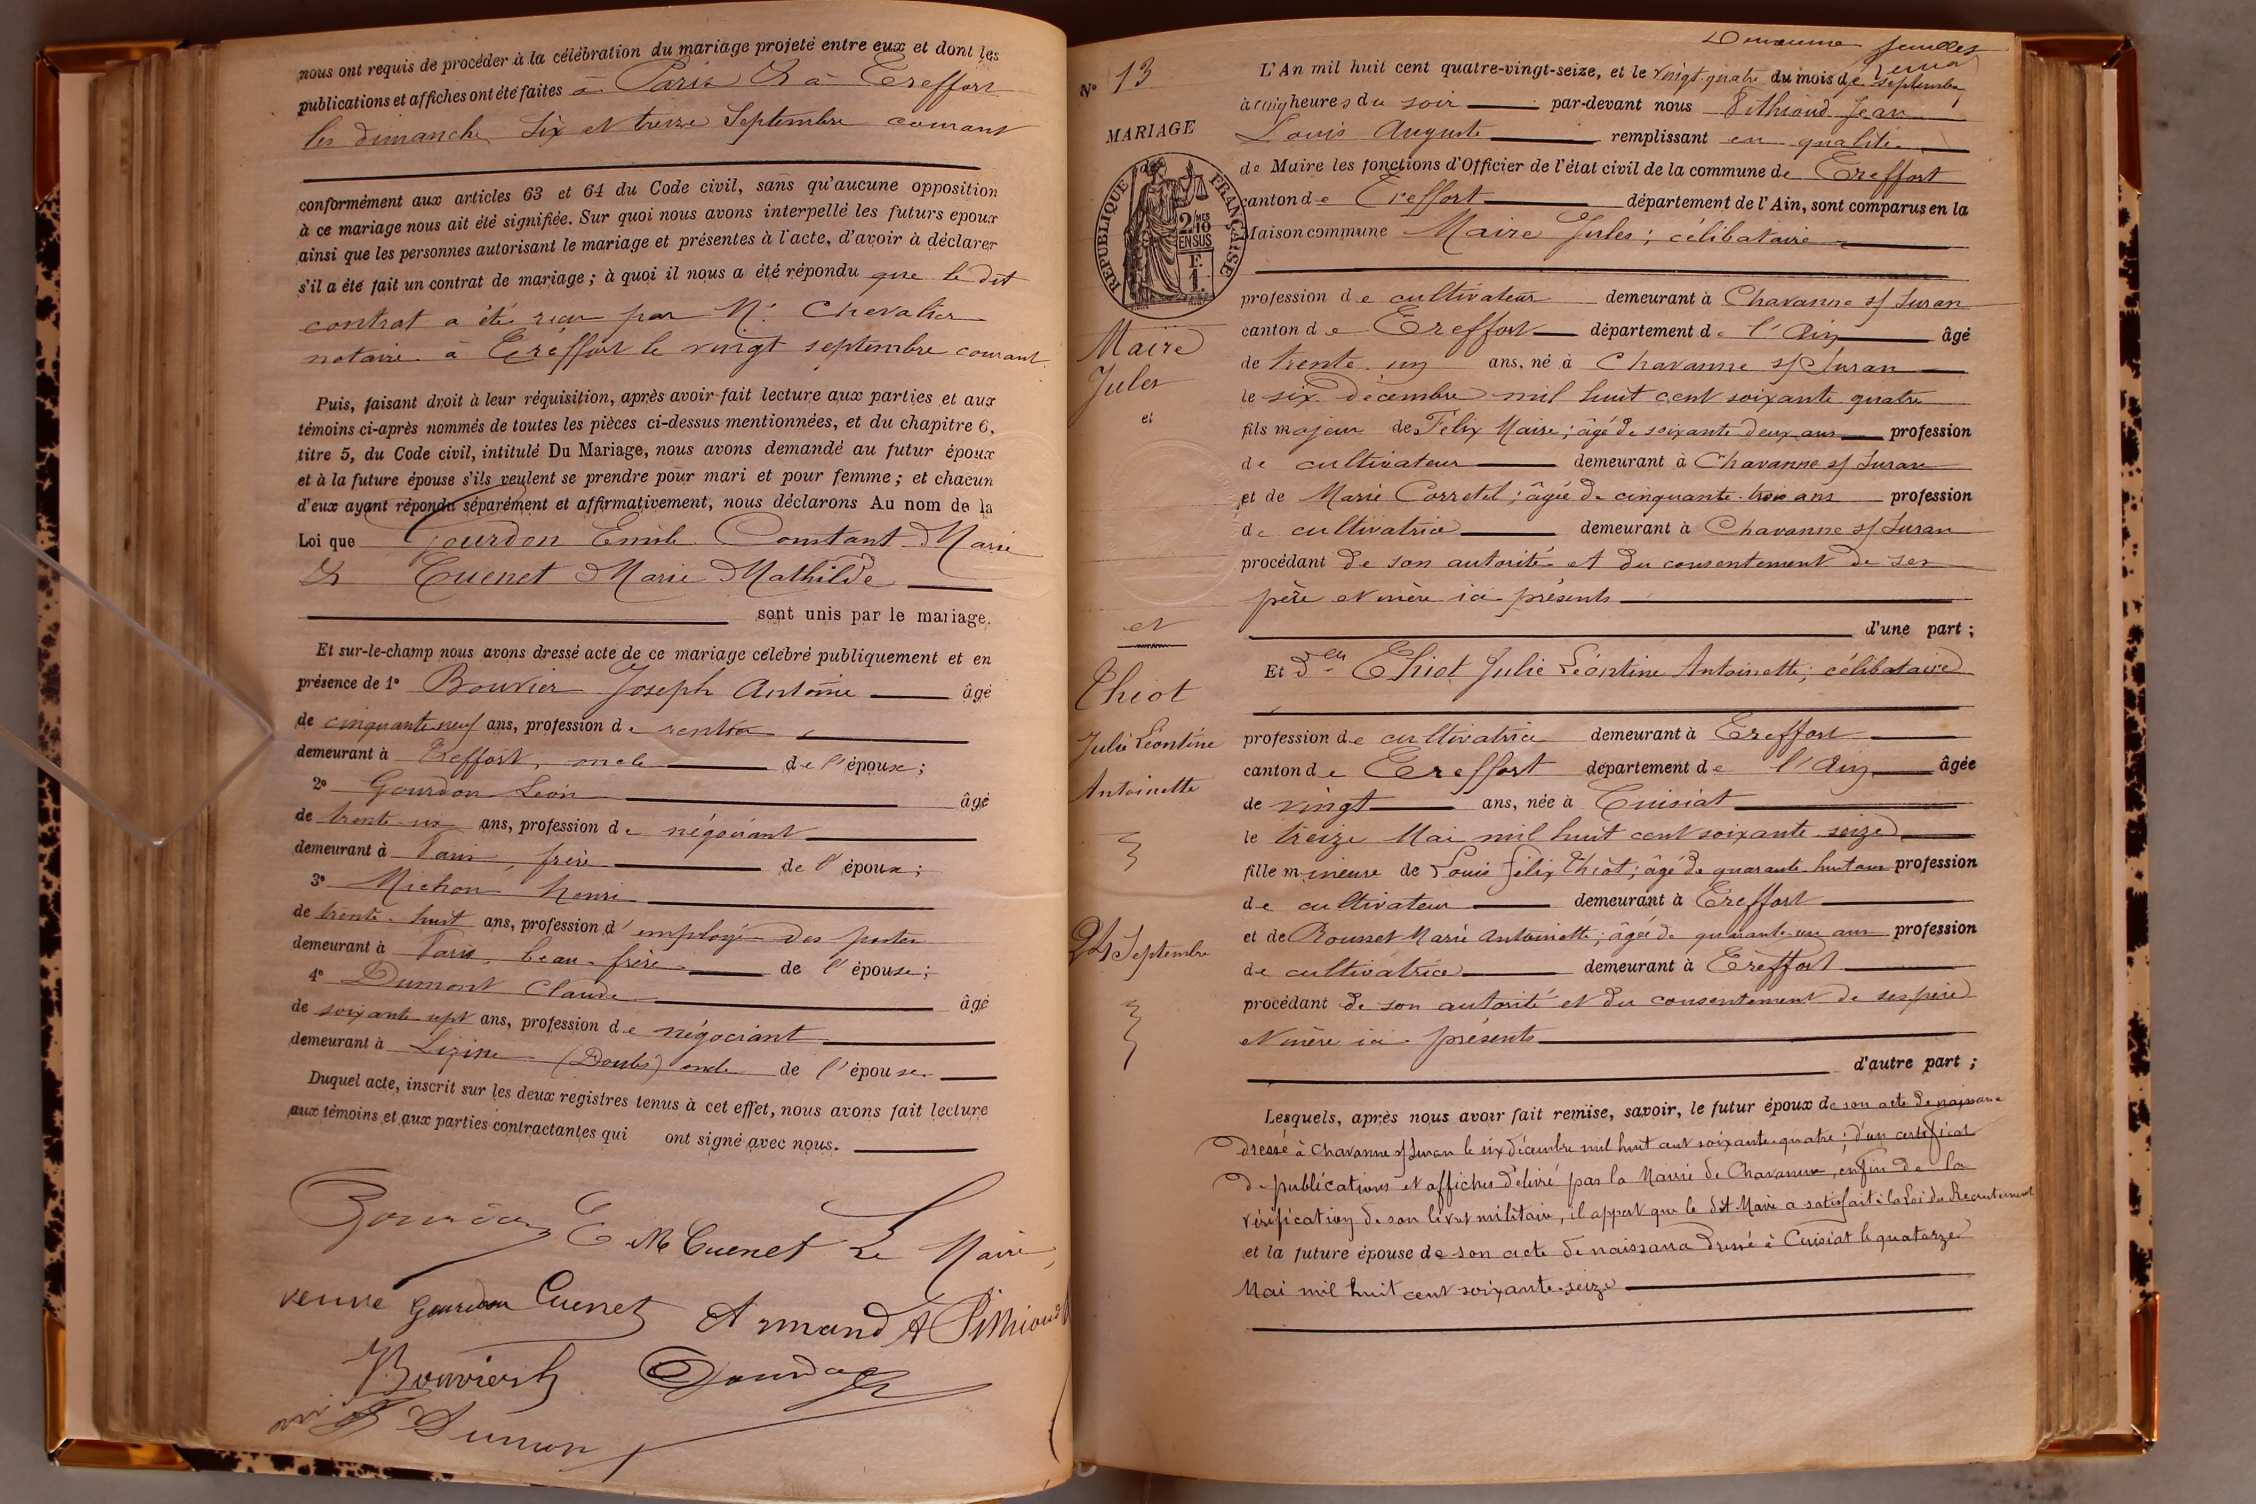 nous ont requis de procéder à la célébration du mariage projeté entre eux et dont les
publications et affiches ont été faites à Paris & à Treffort
les dimanche six et treize Septembre courant
conformément aux articles 63 et 64 du Code civil, sans qu'aucune opposition
à ce mariage nous ait été signifiée. Sur quoi nous avons interpellé les futurs époux
ainsi que les personnes autorisant le mariage et présentes à l'acte, d'avoir à déclarer
s'il a été fait un contrat de mariage ; à quoi il nous a été répondu que le dit
contrat a été reçu par Me Chevalier
notaire à Treffort le vingt septembre courant.
Puis, faisant droit à leur réquisition, après avoir fait lecture aux parties et aux
témoins ci-après nommés de toutes les pièces ci-dessus mentionnées, et du chapitre 6,
titre 5, du Code civil, intitulé Du Mariage, nous avons demandé au futur époux
et à la future épouse s'ils veulent se prendre pour mari et pour femme ; et chacun
d'eux ayant répondu séparément et affirmativement, nous déclarons Au nom de la
Loi que Gourdon Emile Constant Marie
& Cuenet Marie Mathilde
sont unis par le mariage.
Et sur-le-champ nous avons dressé acte de ce mariage célébré publiquement et en
présence de 1° Bouvier Joseph Antoine âgé
de cinquante neuf ans, profession de rentier
demeurant à Treffort, oncle de l'épouse ;
2° Gourdon Léon âgé
de trente-un ans, profession de négociant
demeurant à Paris, frère de l'époux ;
3° Michon Henri
de trente-huit ans, profession d'employé des postes
demeurant à Paris, beau-frère de l'épouse ;
4° Dumont Claude âgé
de soixante sept ans, profession de négociant
demeurant à Lizine (Doubs) oncle de l'épouse.
Duquel acte, inscrit sur les deux registres tenus à cet effet, nous avons fait lecture
aux témoins et aux parties contractantes qui ont signé avec nous.
Gourdon E M Cuenet Le Maire,
veuve Gourdon Cuenet Armand A Pithioud
Bouvier Gourdon
Dumon
Douzième feuillet
N° 13
MARIAGE
RÉPUBLIQUE FRANÇAISE
2/10MES
EN SUS
F.
1.
Maire
Jules
et
et
Thiot
Julie Léontine
Antoinette
24 Septembre
L'An mil huit cent quatre-vingt-seize, et le vingt-quatre du mois de septembre
à cinq heures du soir par-devant nous Pithioud Jean
Louis Auguste remplissant en qualité
de Maire les fonctions d'Officier de l'état civil de la commune de Treffort
canton de Treffort département de l'Ain, sont comparus en la
Maison commune Maire Jules ; célibataire
profession de cultivateur demeurant à Chavanne s/ Suran
canton de Treffort département de l'Ain âgé
de trente un ans, né à Chavanne s/ Suran
le six décembre mil huit cent soixante quatre
fils majeur de Félix Maire ; âgé de soixante deux ans profession
de cultivateur demeurant à Chavanne s/ Suran
et de Marie Corretel ; âgée de cinquante-trois ans profession
de cultivatrice demeurant à Chavanne s/ Suran
procédant de son autorité et du consentement de ses
père et mère ici présents
d'une part ;
Et Dlle Thiot Julie Léontine Antoinette ; célibataire
profession de cultivatrice demeurant à Treffort
canton de Treffort département de l'Ain âgée
de vingt ans, née à Cuisiat
le treize Mai mil huit cent soixante seize
fille mineure de Louis Félix Thiot ; âgé de quarante-huit ans profession
de cultivateur demeurant à Treffort
et de Rousset Marie Antoinette ; âgée de quarante-un ans profession
de cultivatrice demeurant à Treffort
procédant de son autorité et du consentement de ses père
et mère ici présents
d'autre part ;
Lesquels, après nous avoir fait remise, savoir, le futur époux de son acte de naissance
dressé à Chavanne s/ Suran le six décembre mil huit cent soixante-quatre ; d'un certificat
de publications et affiches délivré par la Mairie de Chavanne, enfin de la
vérification de son livret militaire, il appert que le dit Maire a satisfait à la Loi du Recrutement
et la future épouse de son acte de naissance dressé à Cuisiat le quatorze
Mai mil huit cent soixante-seize